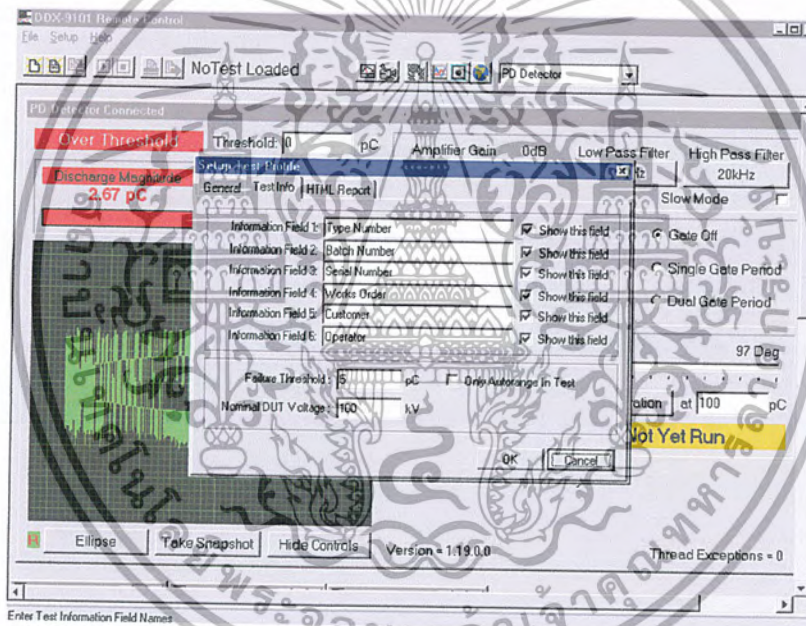 DDX-9101 Remote Control
File Setup Help
NoTest Loaded PD Detector
PD Detector Connected
Over Threshold Threshold: 0 pC Amplifier Gain 0dB Low Pass Filter High Pass Filter
Hz 20kHz
Discharge Magnitude
2.67 pC
Slow Mode
Setup Test Profile
General Test Info HTML Report
Information Field 1: Type Number Show this field
Information Field 2: Batch Number Show this field
Information Field 3: Serial Number Show this field
Information Field 4: Works Order Show this field
Information Field 5: Customer Show this field
Information Field 6: Operator Show this field
Failure Threshold: 5 pC Only Autorange In Test
Nominal DUT Voltage: 100 kV
OK Cancel
Gate Off
Single Gate Period
Dual Gate Period
97 Deg
ration at 100 pC
Not Yet Run
R Ellipse Take Snapshot Hide Controls Version = 1.19.0.0 Thread Exceptions = 0
Enter Test Information Field Names